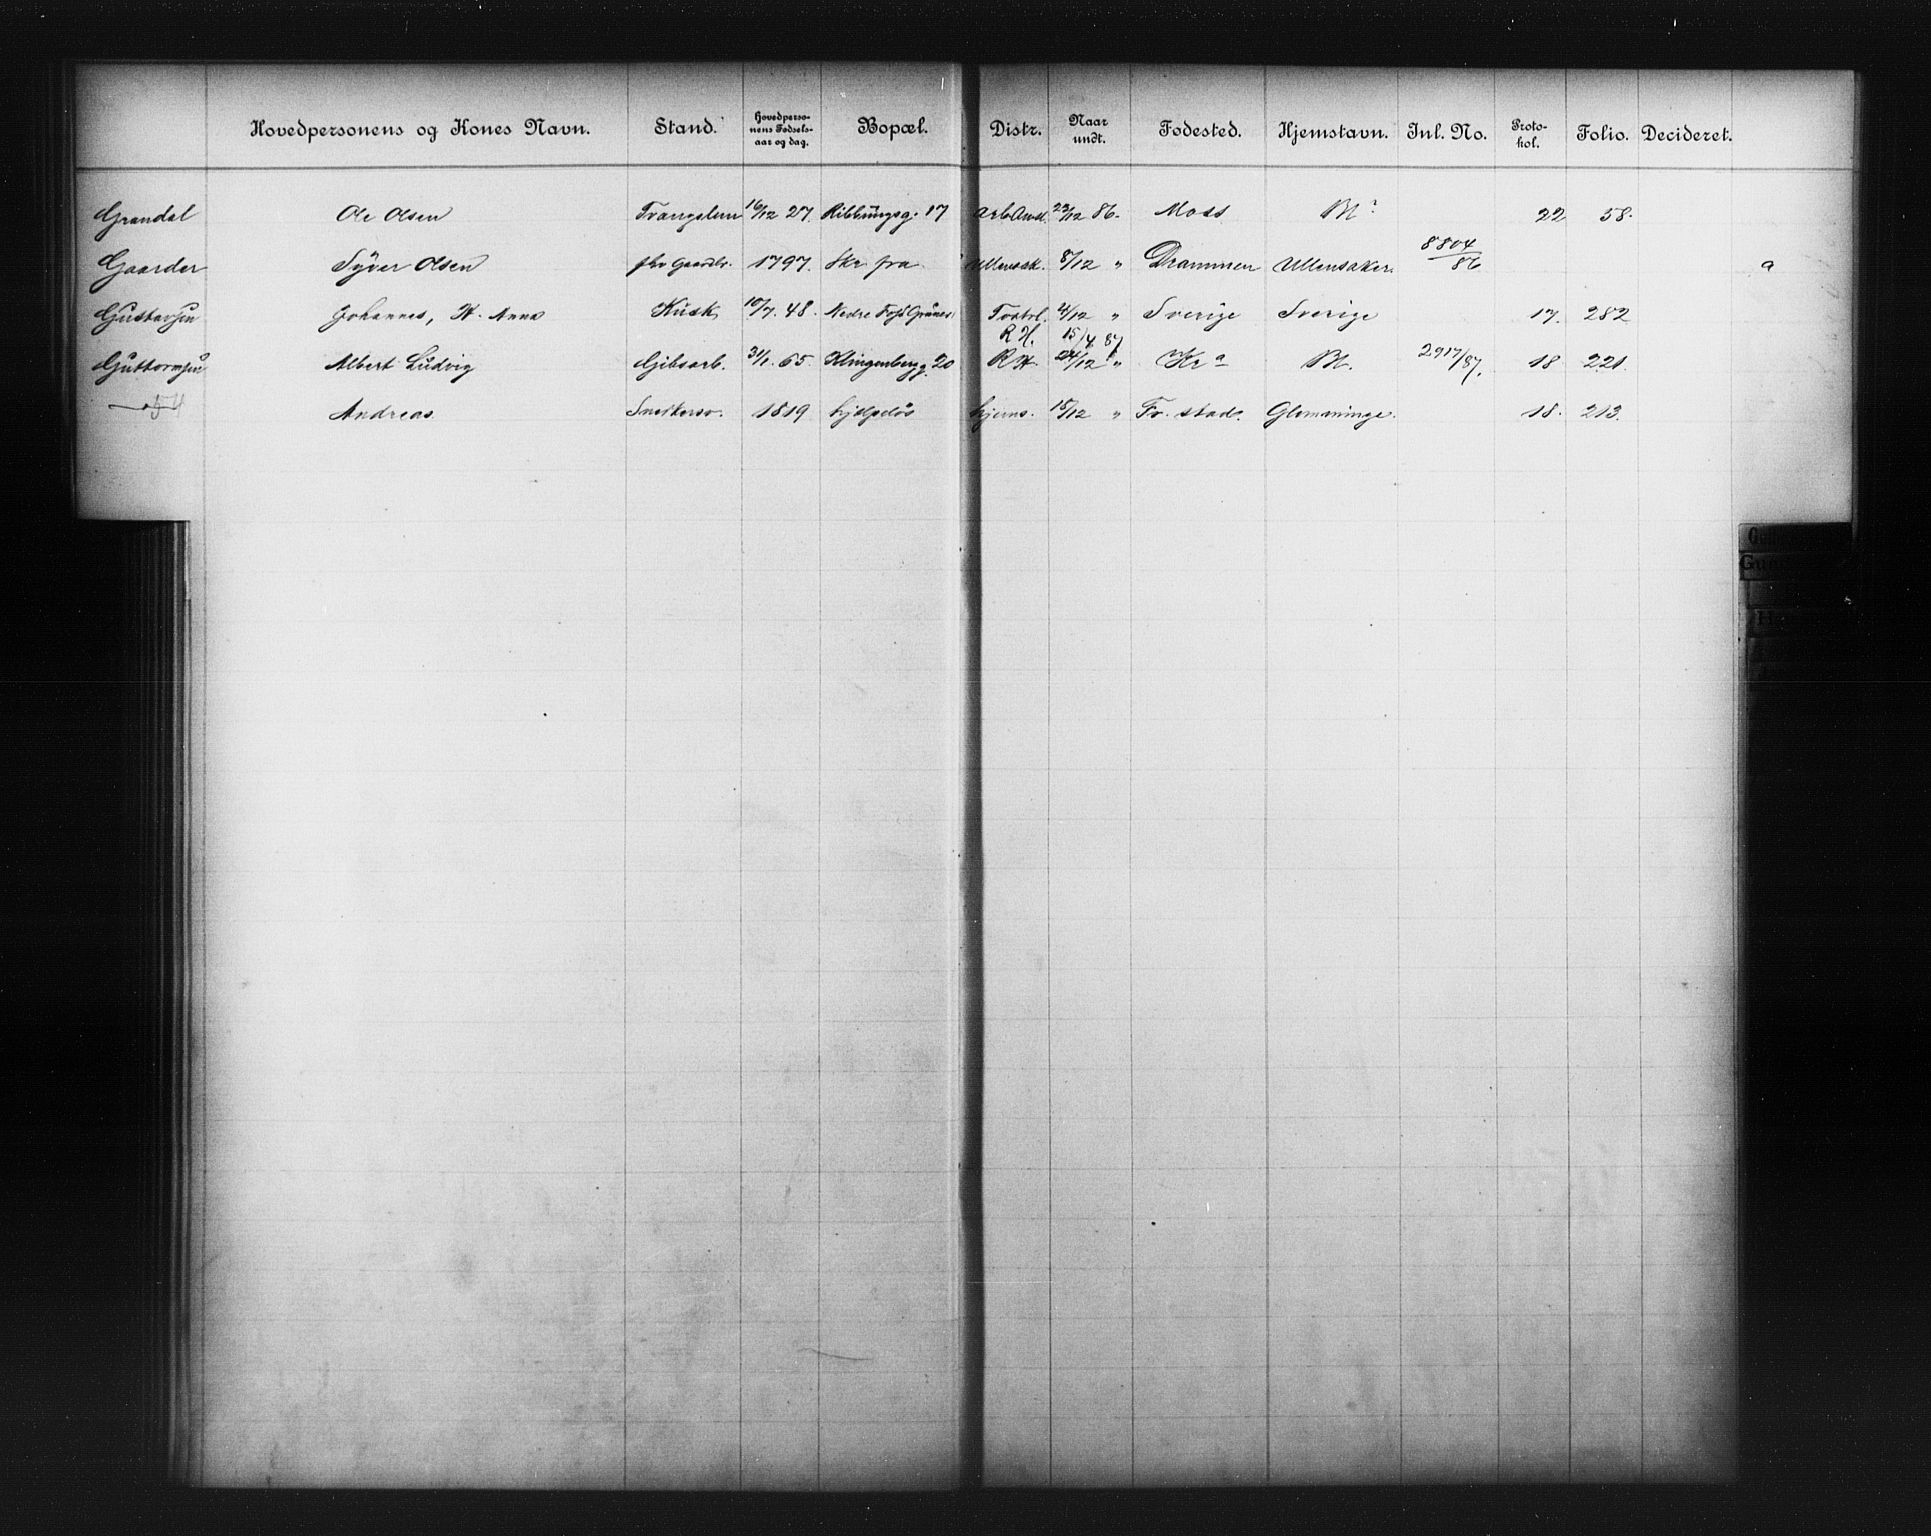 Hovedpersonens og Kones Navn. Stand. Hovedpersonens Fødselsaar og dag. Bopæl. Distr. Naar undt. Fødested. Hjemstavn. Inl. No. Protokol. Folio. Decideret.
Grandal Ole Olsen Tvangslem 16/12 27. Ribbungsg. 17 Arb Anst. 22/12 86. Moss 22 58.
Gaarder Syver Olsen fhv Gaardbr. 1797. Skr. fra Ullensak. 8/12 " Drammen Ullensaker. 8804/86 a
Gustavsen Johannes, H. Anna Kusk 10/7. 48. Nedre Foss Grüners Tostrl. 21/12 " Sverige Sverige 17. 282
R H. 15/4 87
Guttormsen Albert Ludvig Gibsarb. 31/1. 65. Klingenbergg. 20 R H. 24/12 " Kr a 2917/87. 18. 221.
Andreas Snedkersv. 1819 hjelpeløs hjems. 15/12 " Fr. stad. Glemminge. 18. 213.